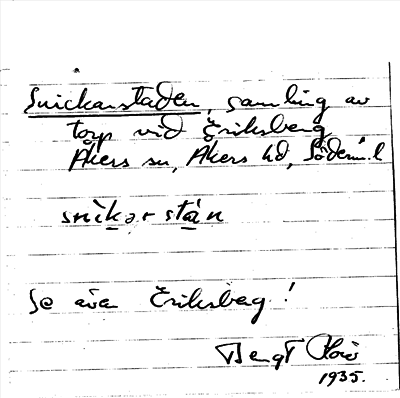 Snickarstaden, samling av
torp vid Eriksberg
Åkers sn, Åkers hd, Söderm.l
snìkər stàn
Se även Eriksberg!
Bengt
1935.